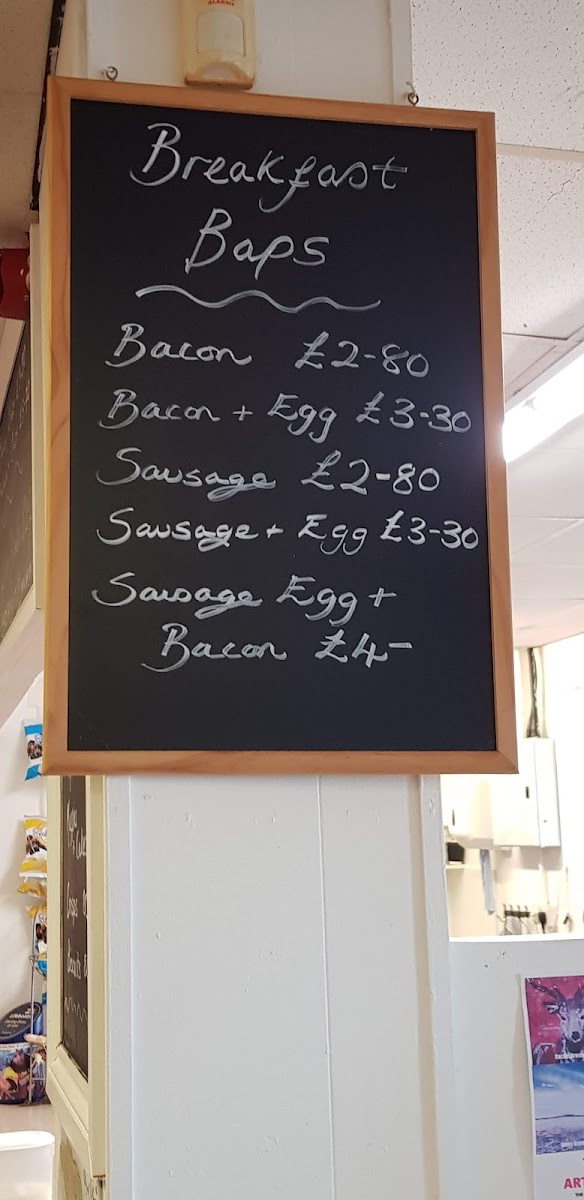 ALARMS
Breakfast
Baps
Bacon £2-80
Bacon + Egg £3-30
Sausage £2-80
Sausage + Egg £3-30
Sausage Egg +
Bacon £4-